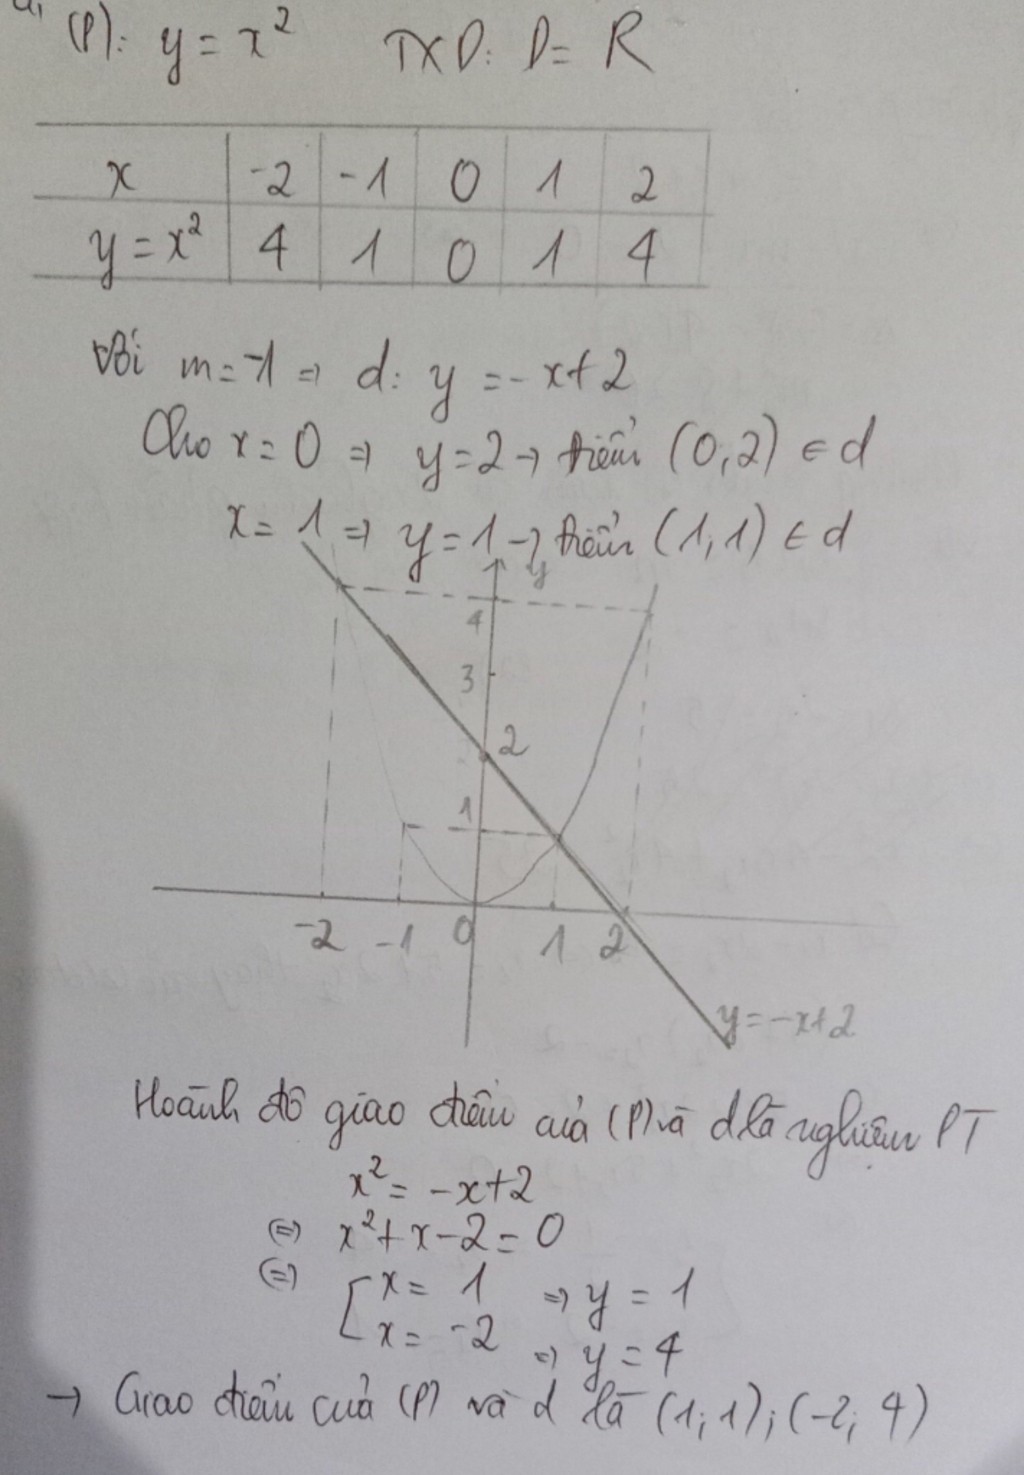 a,
(P): y = x² TXD: D = R
x -2 -1 0 1 2
y = x² 4 1 0 1 4
Với m = -1 ⇒ d: y = -x+2
Cho x = 0 ⇒ y = 2 → điểm (0,2) ∈ d
x = 1 ⇒ y = 1 → điểm (1,1) ∈ d
y
4
3
2
1
-2 -1 0 1 2
y = -x+2
Hoành độ giao điểm của (P) và d là nghiệm PT
x² = -x+2
⇔ x² + x - 2 = 0
⇔ [ x = 1 ⇒ y = 1
x = -2 ⇒ y = 4
→ Giao điểm của (P) và d là (1;1); (-2; 4)